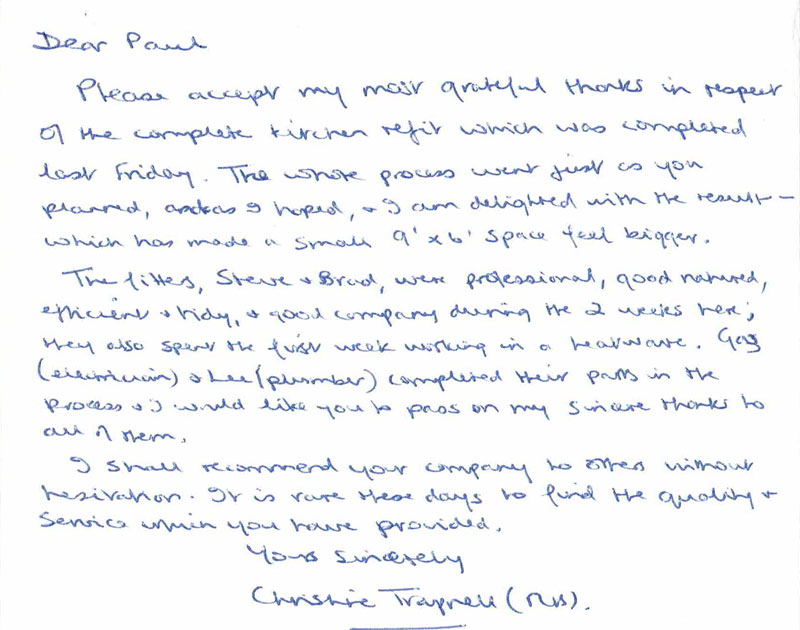 Dear Paul
Please accept my most grateful thanks in respect
of the complete kitchen refit which was completed
last Friday. The whole process went just as you
planned, and as I hoped, & I am delighted with the result –
which has made a small 9' x 6' space feel bigger.
The fitters, Steve & Brad, were professional, good natured,
efficient & tidy, & good company during the 2 weeks here;
they also spent the first week working in a heatwave. Gary
(electrician) & Lee (plumber) completed their parts in the
process & I would like you to pass on my sincere thanks to
all of them.
I shall recommend your company to others without
hesitation. It is rare these days to find the quality &
service which you have provided.
Yours sincerely
Christine Trapnell (Mrs).